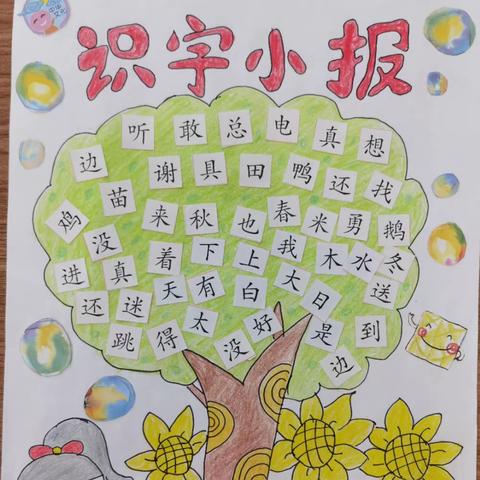 识字小报
听 敢 总 电 真 想
边 谢 具 田 鸭 还 找
鸡 苗 来 秋 也 春 米 勇 鹅
没 着 下 上 我 木 水 冬
进 真 天 有 白 大 日 送
还 迷 太 好
跳 得 没 是 到
边